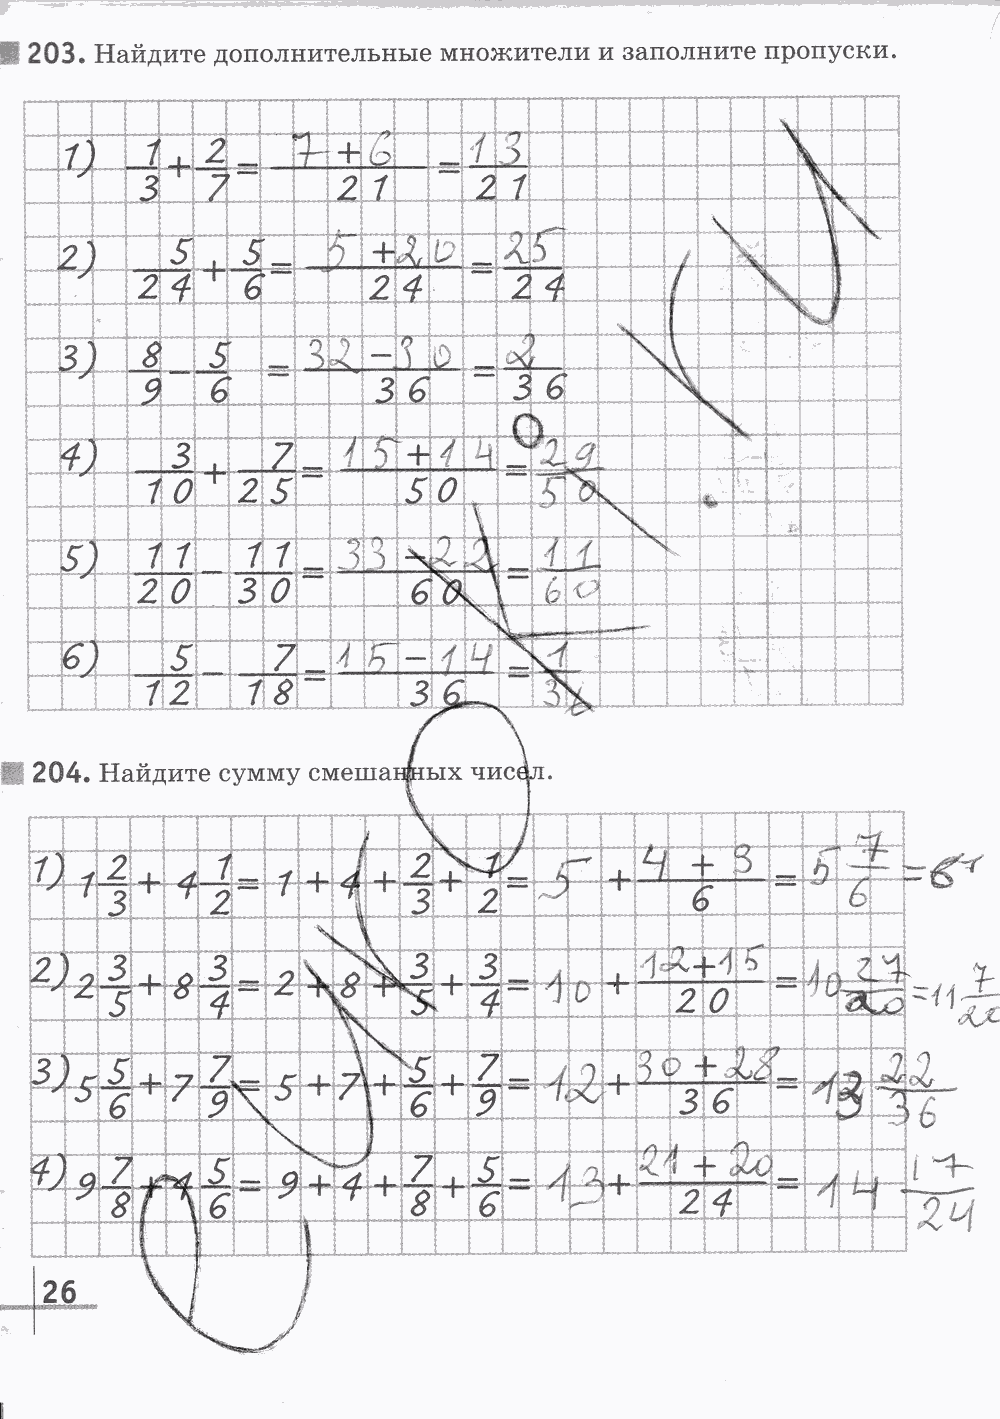 203. Найдите дополнительные множители и заполните пропуски.
1) 1/3 + 2/7 = 7 + 6/21 = 13/21
2) 5/24 + 5/6 = 5 + 20/24 = 25/24
3) 8/9 − 5/6 = 32 − 30/36 = 2/36
4) 3/10 + 7/25 = 15 + 14/50 = 29/50
5) 11/20 − 11/30 = 33 − 22/60 = 11/60
6) 5/12 − 7/18 = 15 − 14/36 = 1/36
204. Найдите сумму смешанных чисел.
1) 1 2/3 + 4 1/2 = 1 + 4 + 2/3 + 1/2 = 5 + 4 + 3/6 = 5 7/6 =
2) 2 3/5 + 8 3/4 = 2 + 8 + 3/5 + 3/4 = 10 + 12 + 15/20 = 10 27/20 = 11 7/20
3) 5 5/6 + 7 7/9 = 5 + 7 + 5/6 + 7/9 = 12 + 30 + 28/36 = 13 22/36
4) 9 7/8 + 4 5/6 = 9 + 4 + 7/8 + 5/6 = 13 + 21 + 20/24 = 14 17/24
26